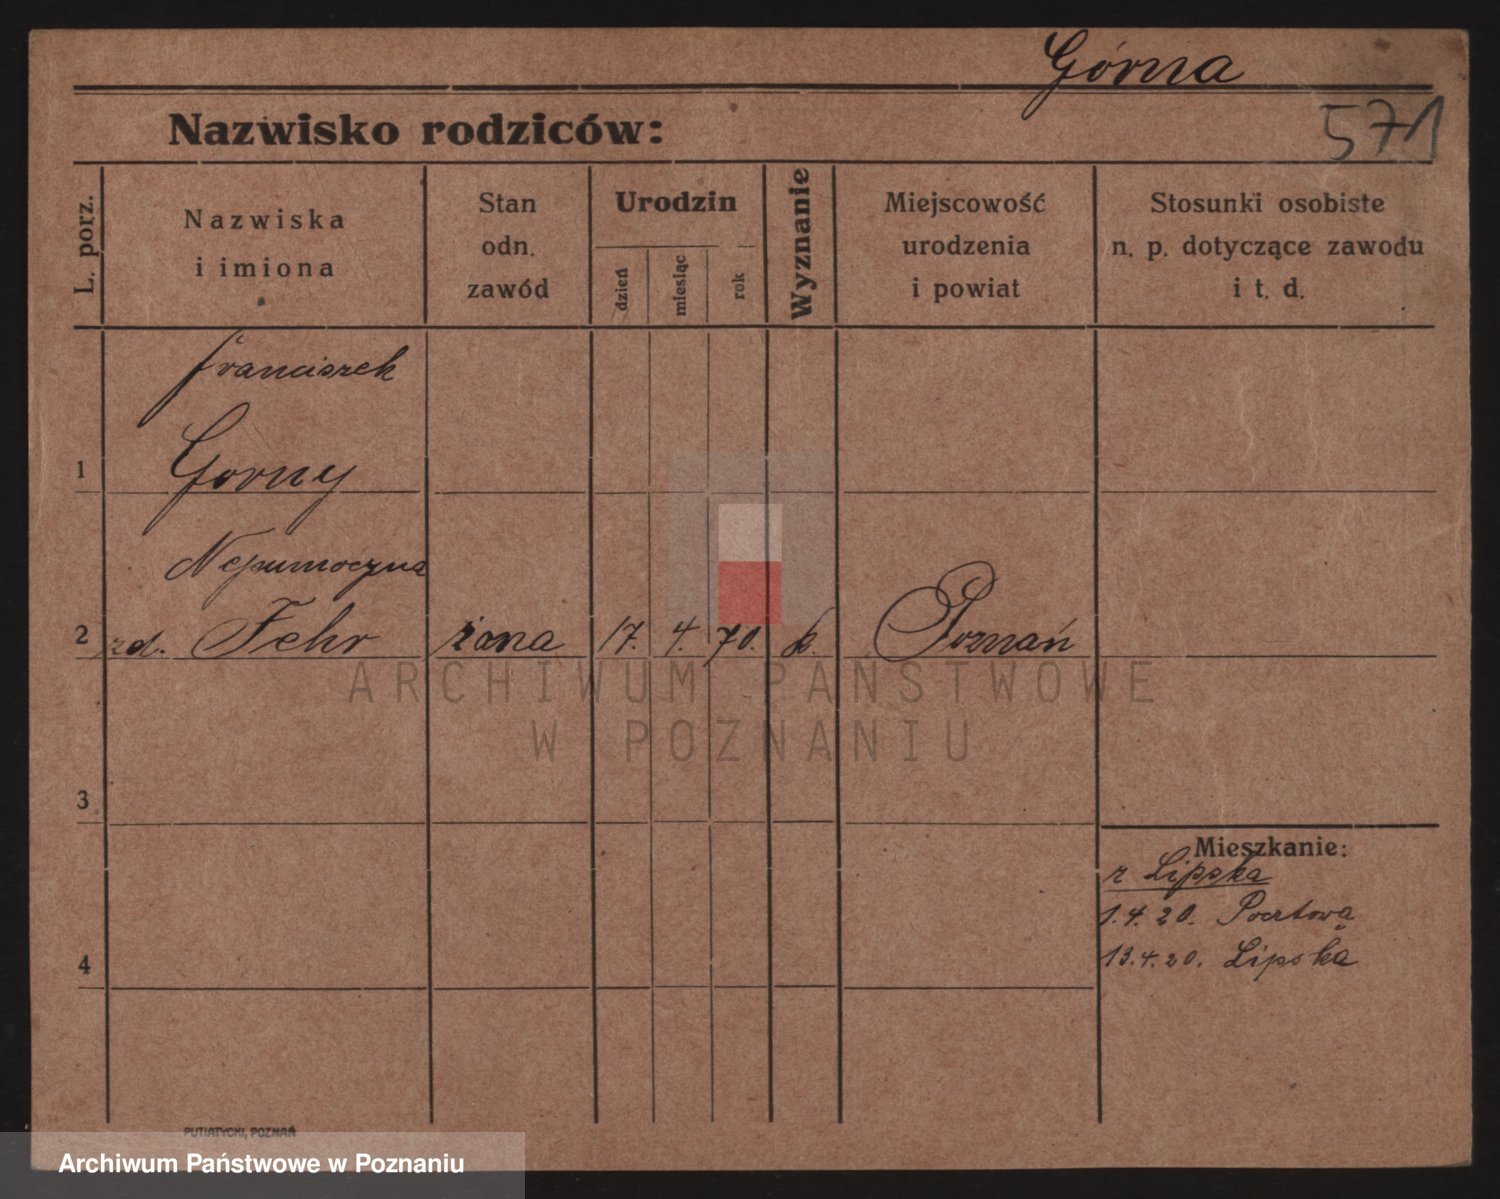 Górna
571
Nazwisko rodziców:
L. porz.
Nazwiska
i imiona
Stan
odn.
zawód
Urodzin
dzień
miesiąc
rok
Wyznanie
Miejscowość
urodzenia
i powiat
Stosunki osobiste
n. p. dotyczące zawodu
i t. d.
Franciszek
1 Gorny
Nepumoczna
2 zd. Fehr żona 17. 4. 70. k. Poznań
ARCHIWUM PAŃSTWOWE
W POZNANIU
3
Mieszkanie:
z Lipska
1.4.20. Pocztowa
13.4.20. Lipska
4
PUTIATYCKI, POZNAŃ
Archiwum Państwowe w Poznaniu